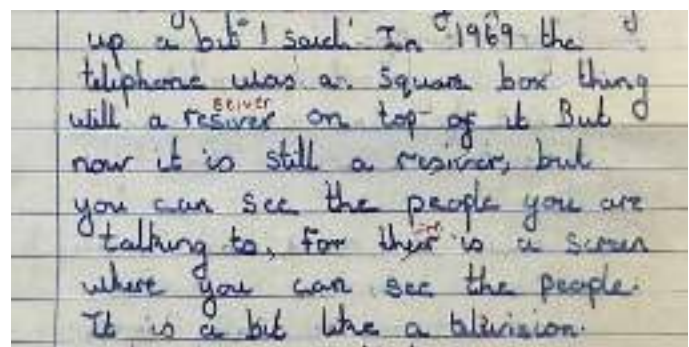 up a bit I said. In 1969 the
teliphone was a square box thing
seiver
will a resiver on top of it But
now it is still a resiver, but
you can see the people you are
talking to, for their is a screen
where you can see the people.
It is a bit like a television.